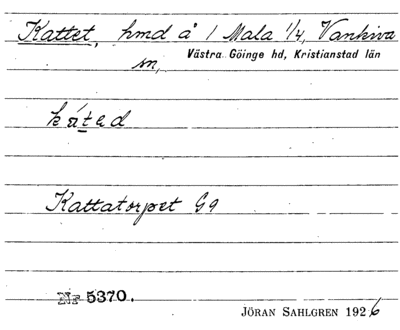 Kattet, hmd å 1 Mala 1/4, Vankiva
sn,
Västra Göinge hd, Kristianstad län
kated
Kattatorpet G9
Nr 5370.
JÖRAN SAHLGREN 1926